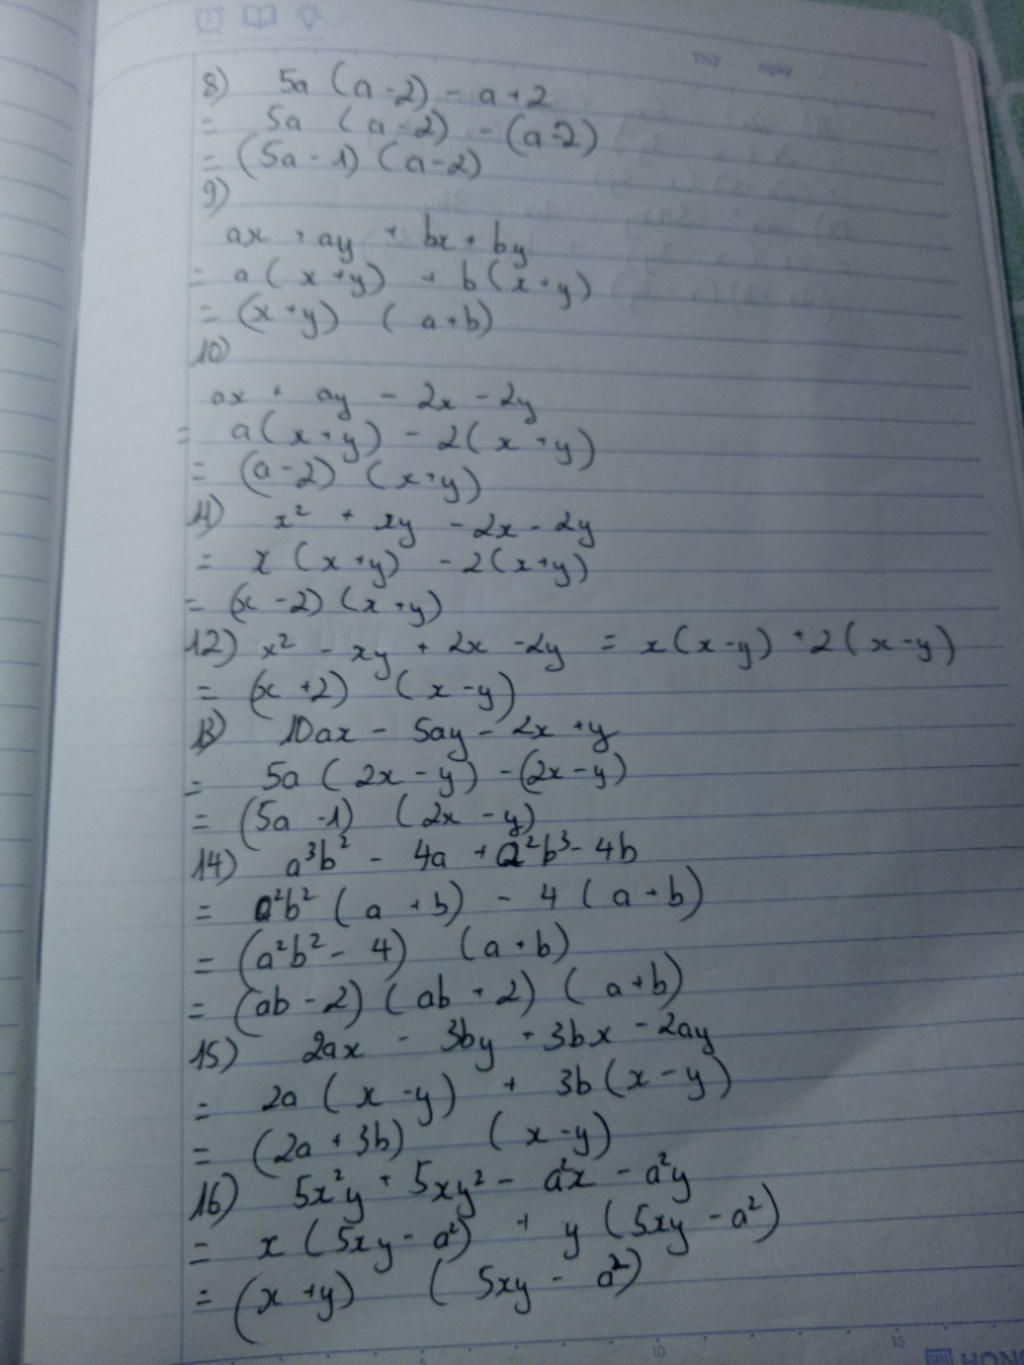 Thứ ngày
8) 5a (a - 2) - a + 2
= 5a (a - 2) - (a - 2)
= (5a - 1) (a - 2)
9)
ax + ay + bx + by
= a (x + y) + b (x + y)
= (x + y) (a + b)
10)
ax + ay - 2x - 2y
= a (x + y) - 2 (x + y)
= (a - 2) (x + y)
11) x² + xy - 2x - 2y
= x (x + y) - 2 (x + y)
= (x - 2) (x + y)
12) x² - xy + 2x - 2y = x (x - y) + 2 (x - y)
= (x + 2) (x - y)
13) 10ax - 5ay - 2x + y
= 5a (2x - y) - (2x - y)
= (5a - 1) (2x - y)
14) a³b² - 4a + a²b³ - 4b
= a²b² (a + b) - 4 (a + b)
= (a²b² - 4) (a + b)
= (ab - 2) (ab + 2) (a + b)
15) 2ax - 3by + 3bx - 2ay
= 2a (x - y) + 3b (x - y)
= (2a + 3b) (x - y)
16) 5x²y + 5xy² - a²x - a²y
= x (5xy - a²) + y (5xy - a²)
= (x + y) (5xy - a²)
5 10 15
HONG